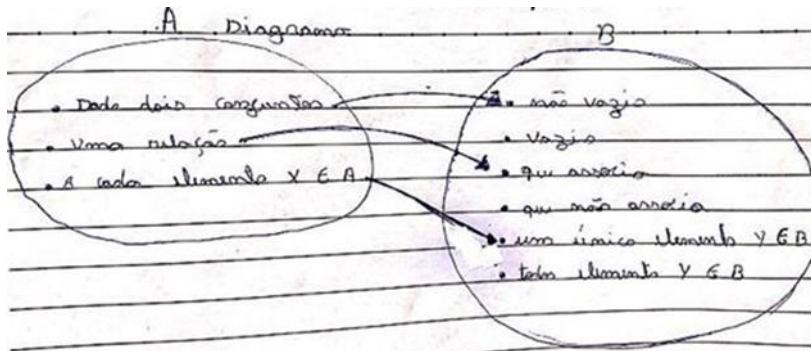 A Diagrama B
• Dado dois conjuntos
• Uma relação
• A cada elemento X ∈ A
• não vazio
• Vazio
• que associa
• que não associa
• um único elemento Y ∈ B
• todo elemento Y ∈ B